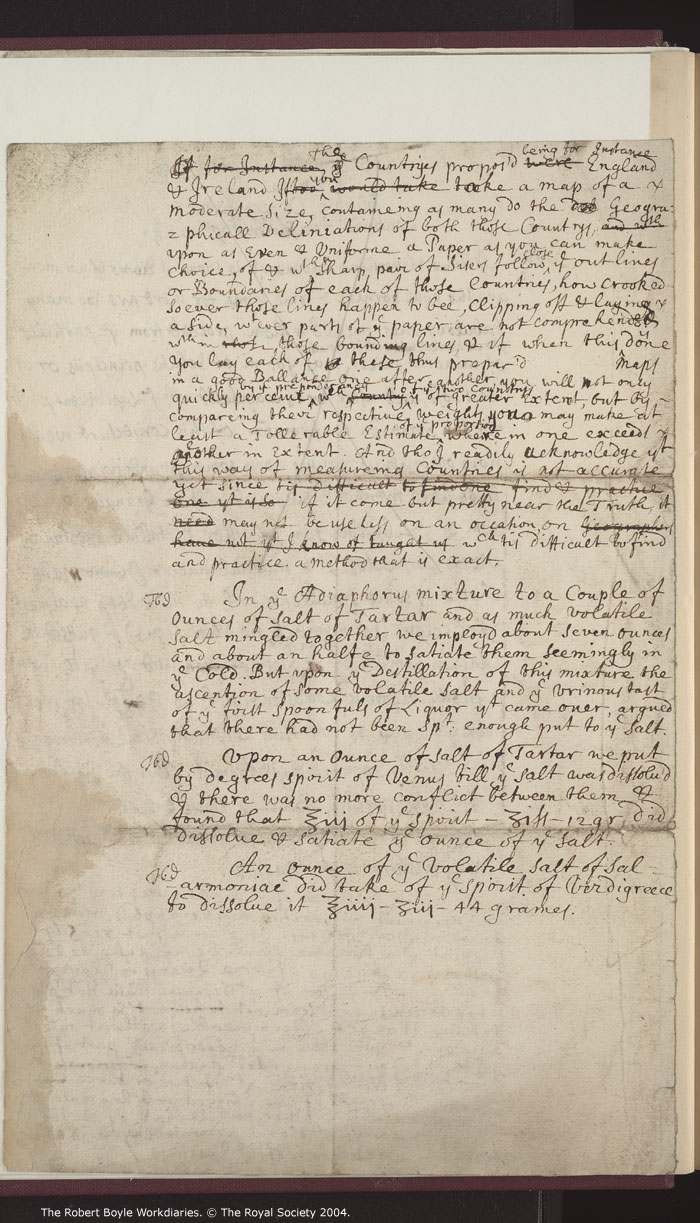 If for Instance yᵉ Countryes propos'd were England
the being for Instance
& Ireland If too would take take a map of a
you
moderate Size, containeing as many do the Geogra=
=phicall Deliniations of both those Countrys, and wth
upon as Even & Uniforme a Paper as you can make
choice of & wth Sharp pair of Sisers follow yᵉ out lines
a close
or Boundaries of each of those Countries, how Crooked
soever those lines happen to bee, Clipping off & laying
a side, wtever parts of yᵉ paper are not comprehended
wthin those bounding lines, & if when this done
you lay each of these thus prepar'd Maps
in a good Ballance one after another, you will not only
by yᵉ preponderancy of yᵉ two Countrys
quickly perceive wch Country is of greater Extent, but by
compareing their respective weights you may make at
of yᵉ proportion
least a Tollerable Estimate, where in one exceeds
another in Extent. And tho I readily acknowledge yt
this way of measureing Countries is not accurate
yet since tis difficult to find one find & practice
one yt is so if it come but pretty near the Truth, it
need may not be useless on an occation, on Geographers
have not yt I know of taught us wch tis difficult to find
and practice a method that is exact.
In yᵉ Adiaphorus mixture to a Couple of
Ounces of Salt of Tartar and as much volatile
Salt mingled together we imployd about seven ounces
and about an halfe to satiate them seemingly in
yᵉ Cold. But upon yᵉ Destillation of this mixture the
ascention of some volatile Salt and yᵉ urinous tast
of yᵉ first spoonfuls of Liquor yt came over, argued
that there had not been Spt: enough put to yᵉ Salt.
Upon an Ounce of Salt of Tartar we put
by degrees spirit of Venus till yᵉ Salt was dissolu'd
& there was no more conflict between them &
found that ℥iij of yᵉ spirit - ʒiss - 12 gr. did
dissolue & satiate yᵉ ounce of yᵉ Salt.
An ounce of yᵉ Volatile Salt of Sal=
armoniac did take of yᵉ spirit of Verdigreece
to dissolue it ℥iiij - ʒiij - 44 graines.
The Robert Boyle Workdiaries. © The Royal Society 2004.